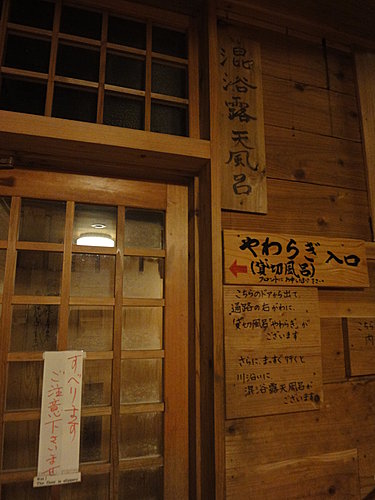 混浴露天風呂
やわらぎ入口
(貸切風呂)
こちらのドアから出て、
通路の右がわに、
"貸切風呂"やわらぎ"が
ございます
さらに、まっすぐ行くと
川沿いに
混浴露天風呂が
ございます。
こちら
内
すべります
ご注意下さいませ
The floor is slippery